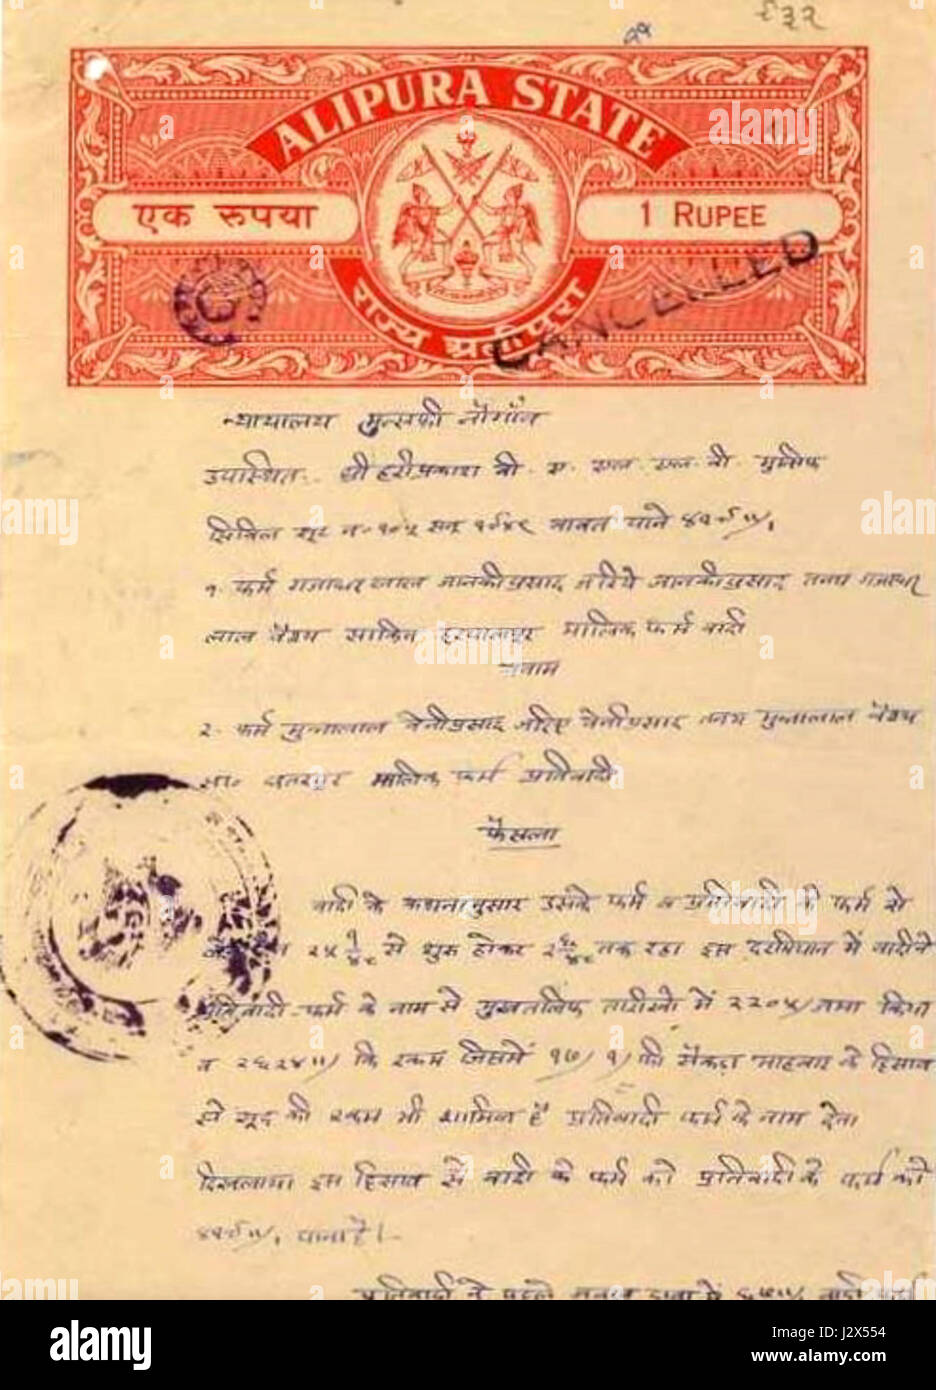 ६३२
ALIPURA STATE
एक रूपया
1 RUPEE
राज्य अलीपुरा
CANCELLED
न्यायालय मुन्सफी नौगाँव
उपस्थित:- श्री हरीप्रकाश बी. ए. एल. एल. बी. मुंसिफ
सिविल सूट न० १०५ सन् १९४९ बाबत पाने ४१९॥।
१. फर्म गजाधर लाल जानकीप्रसाद जरिये जानकीप्रसाद तनय गजाधर
लाल वैश्य साकिन हरपालपुर मालिक फर्म वादी
बनाम
२. फर्म मुन्नालाल बेनीप्रसाद जरिए बेनीप्रसाद तनय मुन्नालाल वैश्य
सा० छतरपुर मालिक फर्म प्रतिवादी
फैसला
वादी के कथनानुसार उसके फर्म व प्रतिवादी की फर्म से
से शुरू होकर तक रहा इस दरमियान में वादी ने
प्रतिवादी फर्म के नाम से मुखतलिफ तारीखों में २२०५/ जमा किया
व २६२४॥/ कि रकम जिसमें १७/१/ की सैकड़ा माहवार के हिसाब
से सूद की रकम भी शामिल है प्रतिवादी फर्म के नाम देना
दिखलाया इस हिसाब से वादी के फर्म को प्रतिवादी के फर्म को
४१९॥। पाना है।
प्रतिवादी ने पहले में वादी
alamy
alamy stock photo
Image ID: J2X554
www.alamy.com